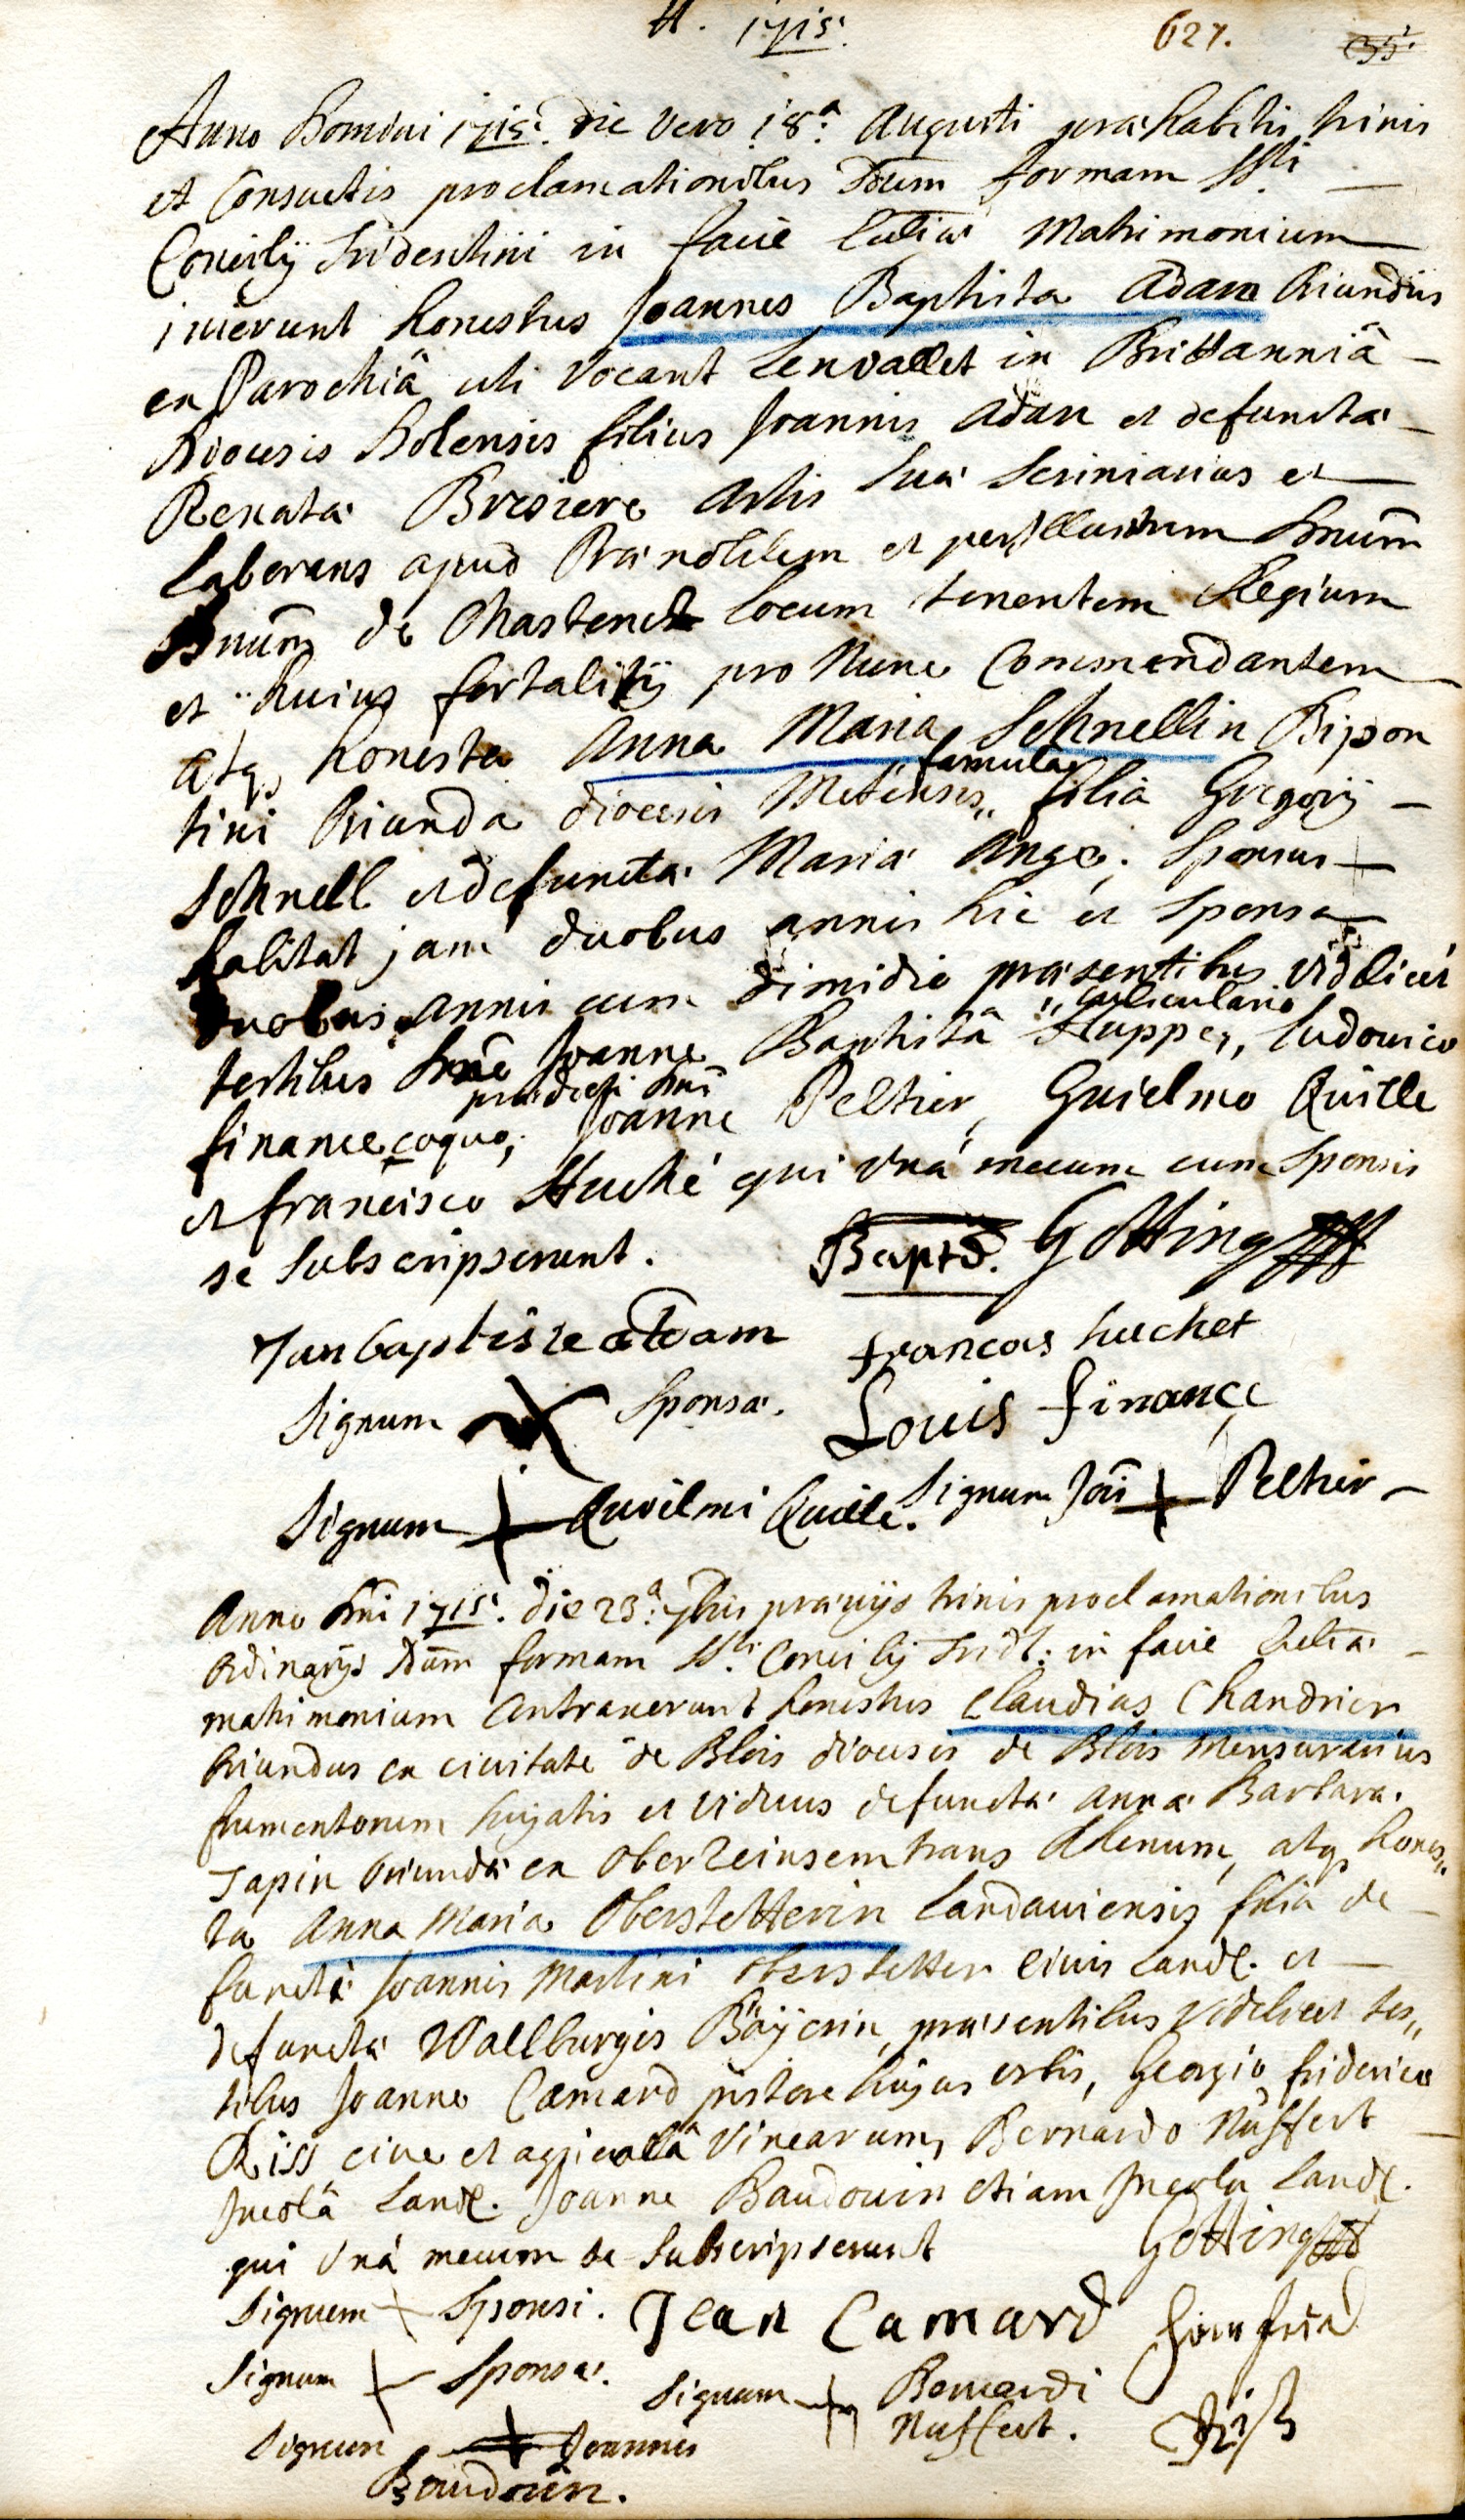 A. 1715.
627.
Anno Domini 1715. die vero 18.a Augusti praehabitis trinis
et Consuetis proclamationibus Sdum formam SSti
Concilÿ Tridentini in facie Eccliae Matrimonium
inierunt honestus Joannes Baptista Adam Oriundus
ex Parochiâ uti vocant Lenvallet in Brittanniâ
Dioecesis Dolensis filius Joannis Adam et defunctae
Renatae Bresiere Artis Suae Scriniarius et
Laborans apud Praenobilem et perillustrem Dnum
Dnum de Chastenet Locum tenentem Regium
et huius fortalitÿ pro Nunc Commendantem
atq, honesta Anna Maria Schnellin Bipon
tini Oriunda dioecesis Metensis,, famula filia Gregorÿ
Schnell et defunctae Mariae Ange. Sponsus
habitat jam duobus annis hic et Sponsa
duobus annis cum dimidio praesentibus videlicet
testibus Dno Joanne Baptistâ Huppe,, cubiculario, Ludovico
finance coquo, praedicti Dni Joanne Peltier, Guielmo Quille
et francisco Huché qui Unâ mecum cum Sponsis
se Subscripserunt. Baptd. Götting
Jan baptiste adam francois huchet
Signum Sponsae. Louis finance
Signum Quilmi Quille. Signum Jois Peltier
Anno Dni 1715. die 23.a 7bris praevÿs trinis proclamationibus
Ordinarÿs Sdum formam SSti Concilÿ Tridt. in facie Eccliae
matrimonium Contraxerunt honestus Claudius Chandrier
Oriundus ex civitate de Blois dioecesis de Blois Mensurarius
frumentorum hujatis et viduus defunctae Annae Barbarae
Tapin Oriundae ex Oberzeinsem trans Rhenum, atq, hones,,
ta Anna Maria Oberstetterin Landaviensis filia de
functi Joannis Martini Oberstetter Civis Land. et
defunctae Wallburgis Bäÿerin, praesentibus videlicet tes,,
tibus Joanne Camard pistore hujus urbis, Georgio friderico
Riss cive et agricolâ Vinearum, Bernardo Nuffert
Incolâ Land. Joanne Baudouin etiam Incola Land.
qui Unâ mecum se Subscripserunt Götting
Signum Sponsi. Jean Camard
Signum Sponsae. Signum Bernardi
Nuffert. Riß
Signum Joannis
Baudouin.